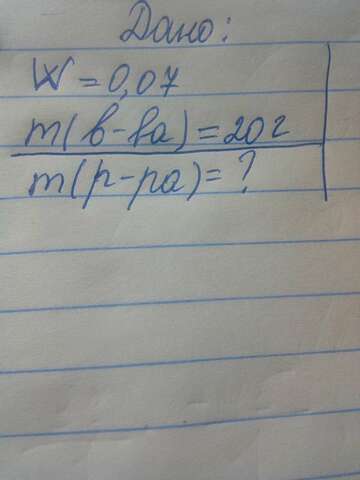 Дано:
W = 0,07
m(в-ва) = 20г
m(р-ра) = ?